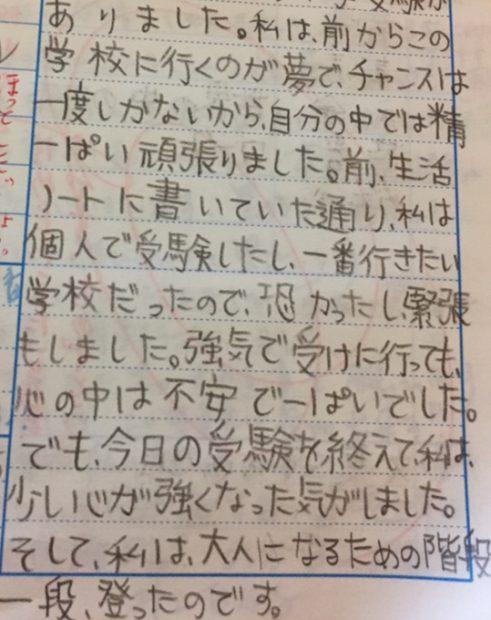 ありました。私は、前からこの
学校に行くのが夢で、チャンスは
一度しかないから、自分の中では精
一ぱい頑張りました。前、生活
ノートに書いていた通り、私は
個人で受験したし、一番行きたい
学校だったので、恐かったし、緊張
もしました。強気で受けに行っても、
心の中は不安で一ぱいでした。
でも、今日の受験を終えて、私は、
少し心が強くなった気がしました。
そして、私は、大人になるための階段
一段、登ったのです。